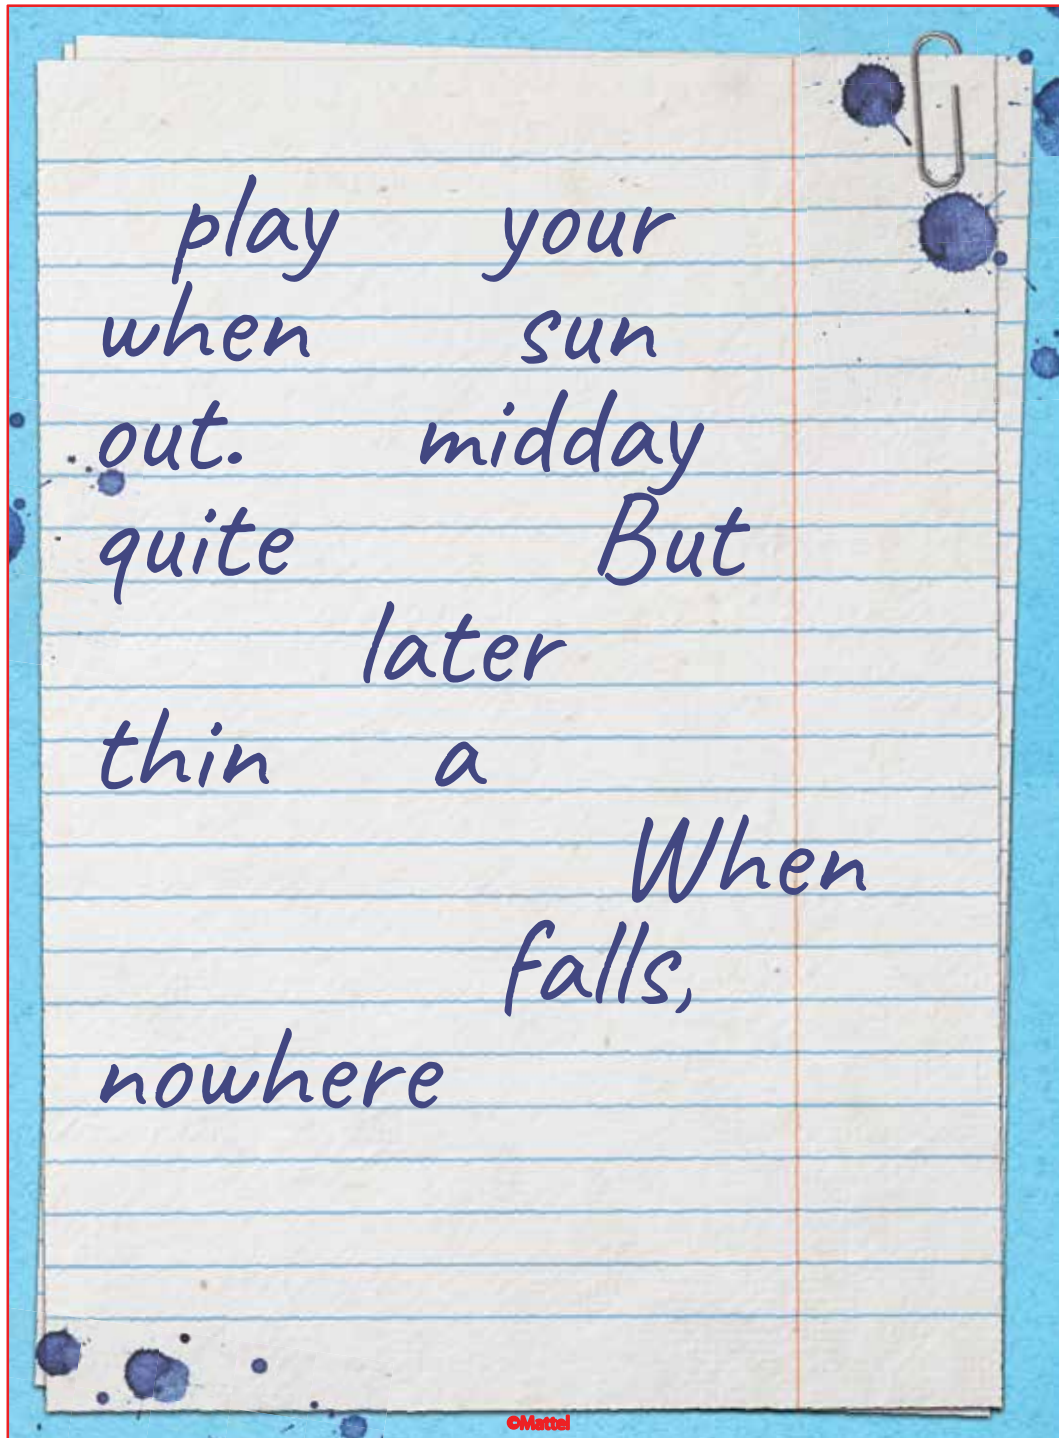 play your
when sun
out. midday
quite But
later
thin a
When
falls,
nowhere
©Mattel